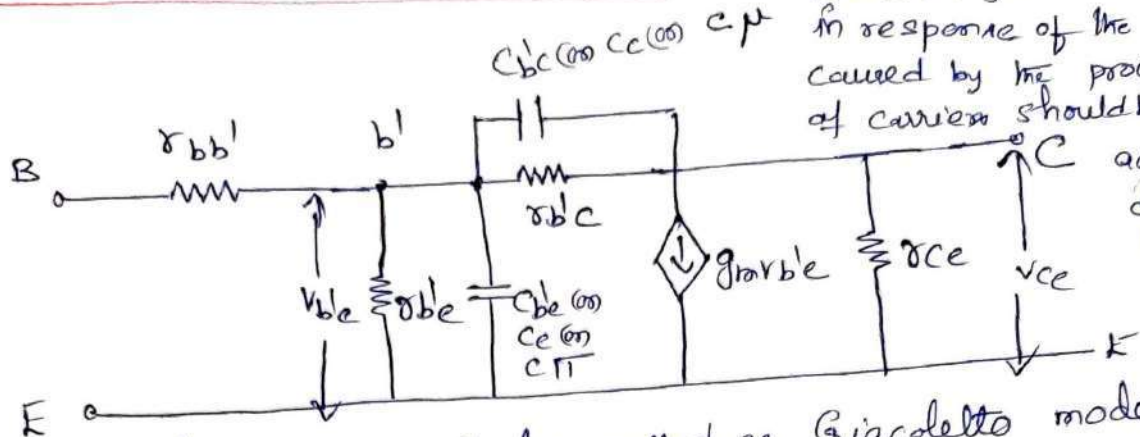 Cb'c (or) Cc (or) Cμ
in response of the
caused by the pro
of carriers should b
rbb'
b'
B
C
rb'c
Vb'e
rb'e
Cb'e (or)
Ce (or)
Cπ
gmvb'e
rce
Vce
E
E
Giacoletto mode